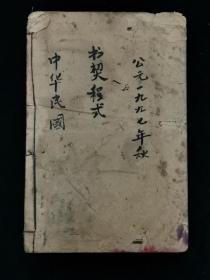 公元一九九七年秋
书契程式
中华民國